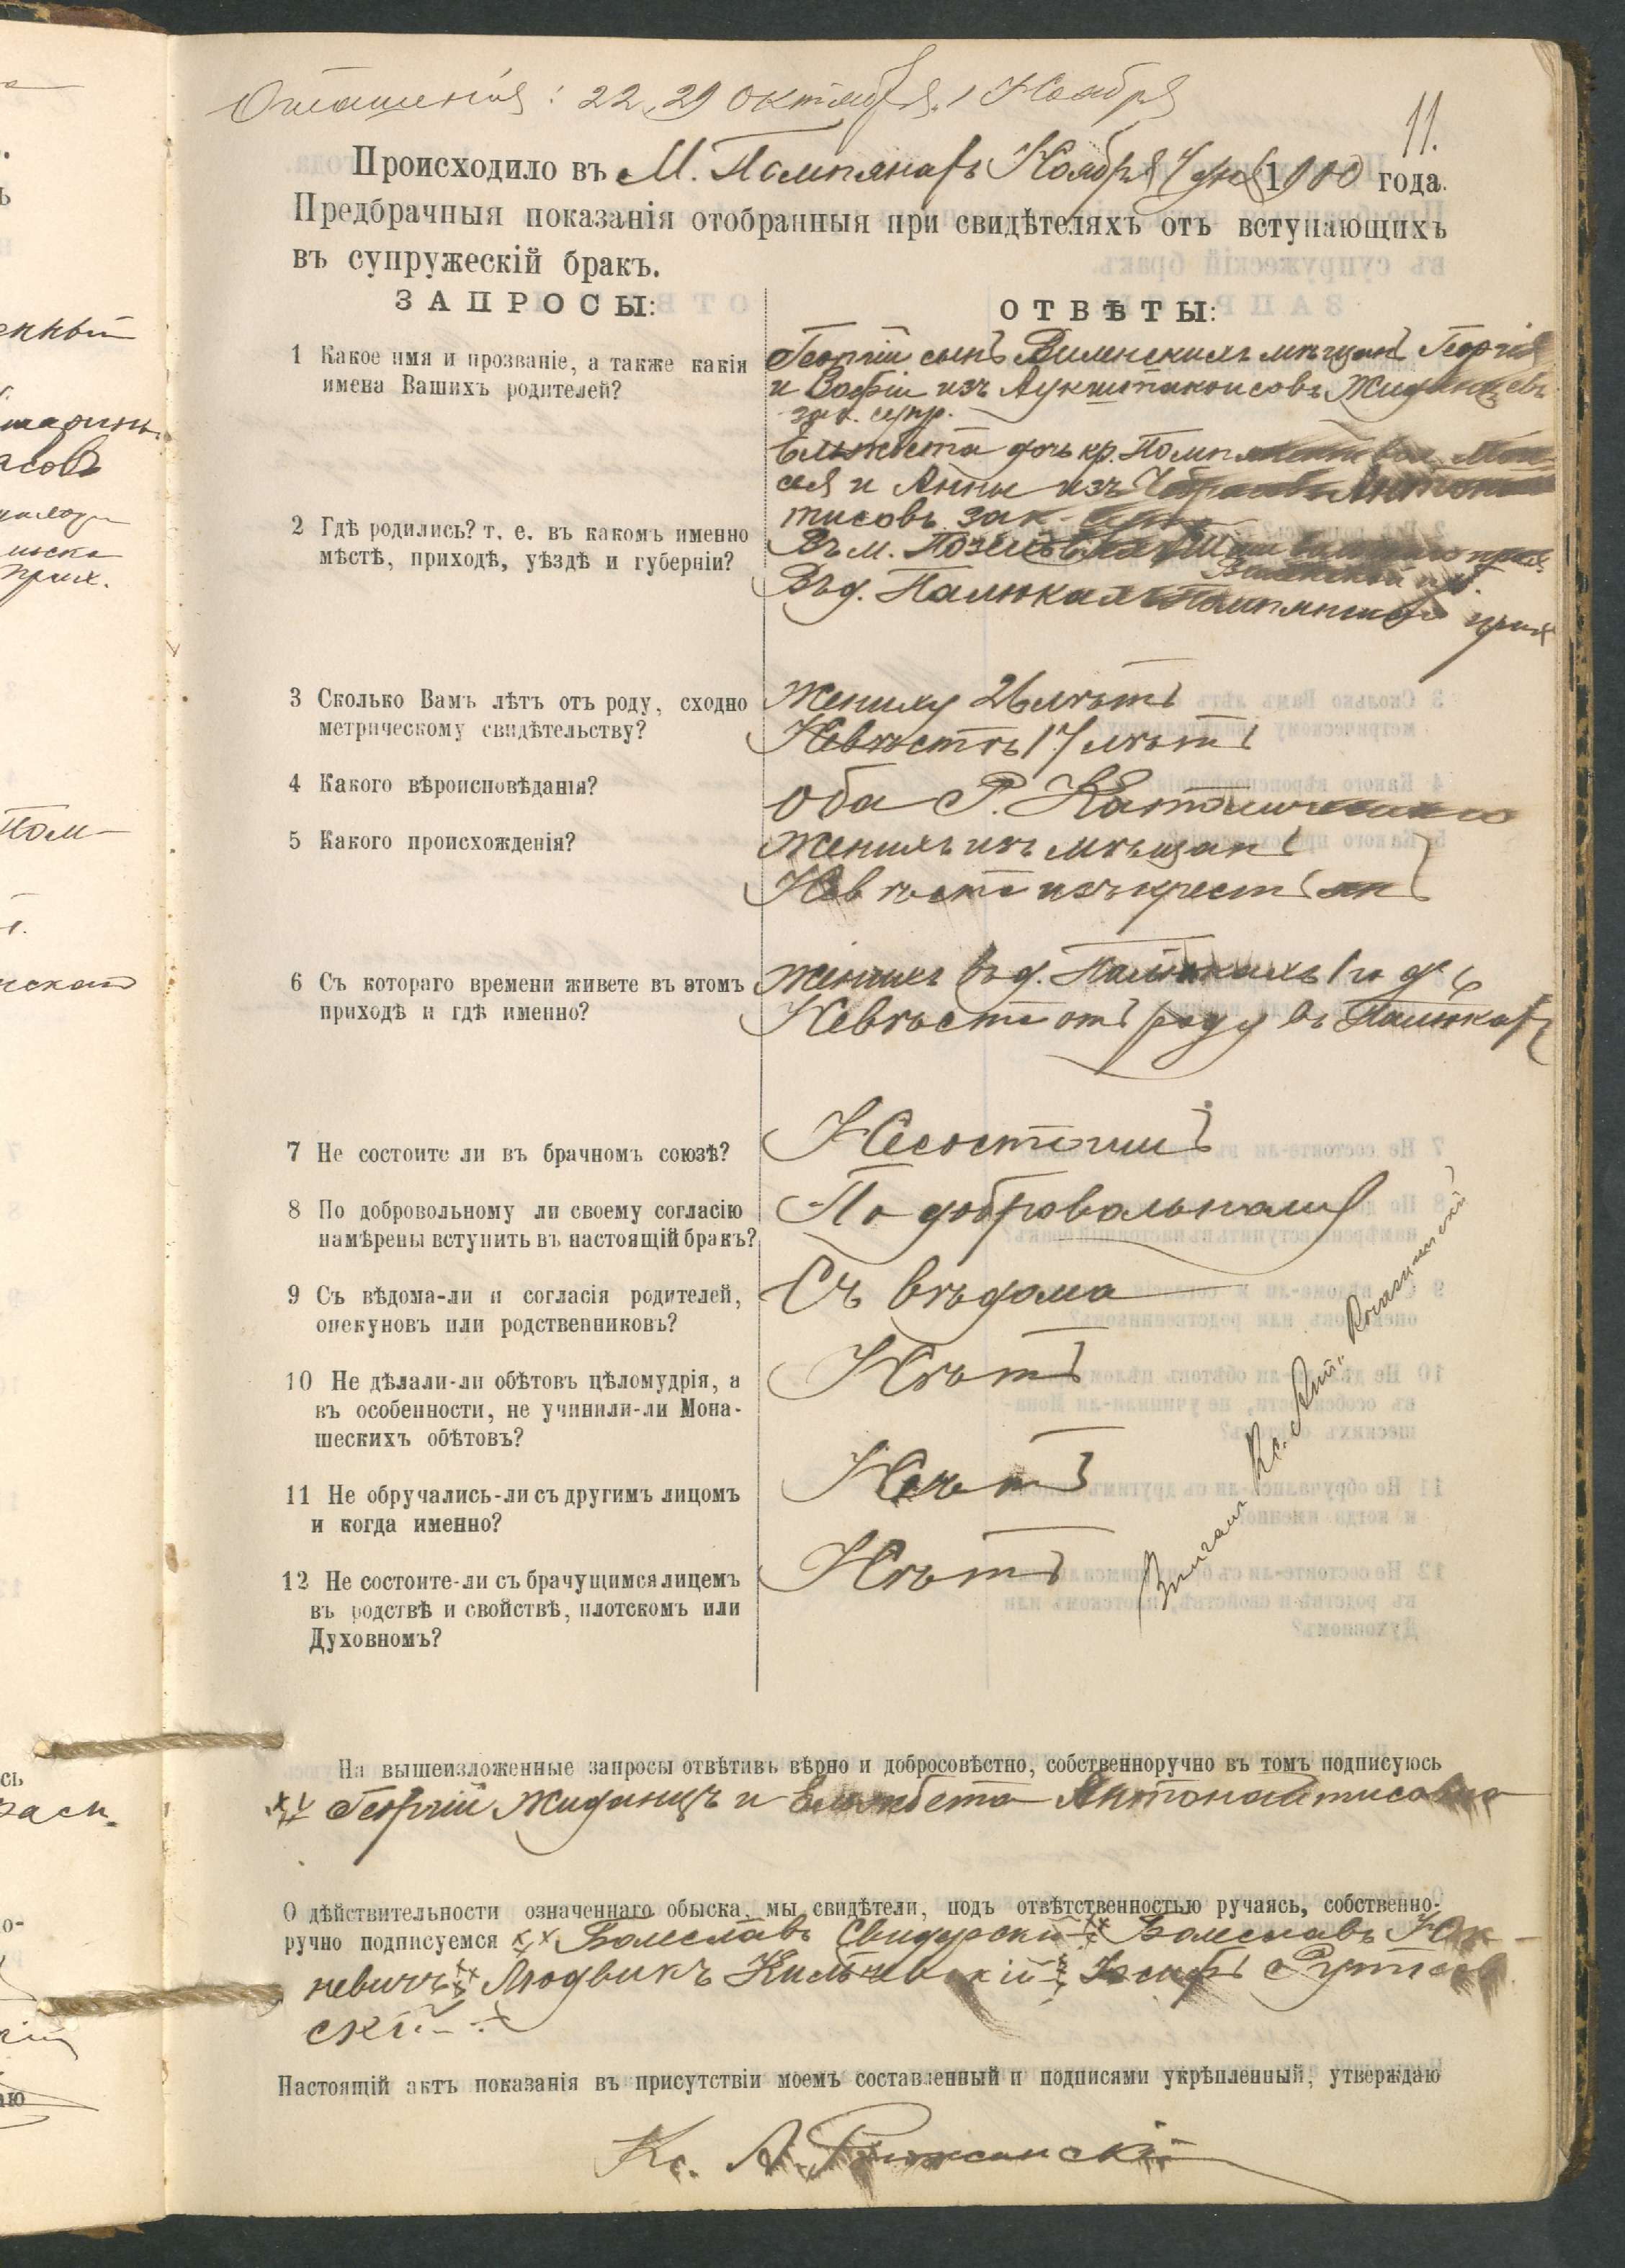 Оглашенія: 22, 29 Октября, 1 Ноября
11.
Происходило въ М. Помпянахъ Ноября 7 дня 1900 года.
Предбрачныя показанія отобранныя при свидѣтеляхъ отъ вступающихъ
въ супружескій бракъ.
ЗАПРОСЫ:
ОТВѢТЫ:
1 Какое имя и прозваніе, а также какія
имена Вашихъ родителей?
Георгій сынъ Виленскихъ мѣщанъ Георгія
и Софіи изъ
зак. супр.
Ельжбета дочь кр. Помпянской вол.
и Анны изъ
тисовъ зак. супр.
2 Гдѣ родились? т. е. въ какомъ именно
мѣстѣ, приходѣ, уѣздѣ и губерніи?
Въ м.
Виленской губ.
Въ д. Палюкахъ Помпянскаго прих
3 Сколько Вамъ лѣтъ отъ роду, сходно
метрическому свидѣтельству?
Жениху 26 лѣтъ
Невѣстѣ 17 лѣтъ
4 Какого вѣроисповѣданія?
оба Р. Католическаго
5 Какого происхожденія?
Женихъ изъ мѣщанъ
Невѣста изъ крестьянъ
6 Съ котораго времени живете въ этомъ
приходѣ и гдѣ именно?
Женихъ въ д. Палюкахъ 1 годъ
Невѣста отъ роду въ Палюкахъ
7 Не состоите ли въ брачномъ союзѣ?
Не состоимъ
8 По добровольному ли своему согласію
намѣрены вступить въ настоящій бракъ?
По добровольному
9 Съ вѣдома-ли и согласія родителей,
опекуновъ или родственниковъ?
Съ вѣдома
10 Не дѣлали-ли обѣтовъ цѣломудрія, а
въ особенности, не учинили-ли Мона-
шескихъ обѣтовъ?
Нѣтъ
11 Не обручались-ли съ другимъ лицомъ
и когда именно?
Нѣтъ
12 Не состоите-ли съ брачущимся лицемъ
въ родствѣ и свойствѣ, плотскомъ или
Духовномъ?
Нѣтъ
Кс. Ант.
На вышеизложенные запросы отвѣтивъ вѣрно и добросовѣстно, собственноручно въ томъ подписуюсь
Георгій Жиданцъ и Ельжбета Антонайтисовна
О дѣйствительности означеннаго обыска, мы свидѣтели, подъ отвѣтственностью ручаясь, собственно-
ручно подписуемся ххх Болеславъ Свидерскій ххх Болеславъ Юх-
невичъ ххх Людвикъ Кильчевскій ххх Іосифъ Рутков
скій
Настоящій актъ показанія въ присутствіи моемъ составленный и подписями укрѣпленный, утверждаю
Кс. А.